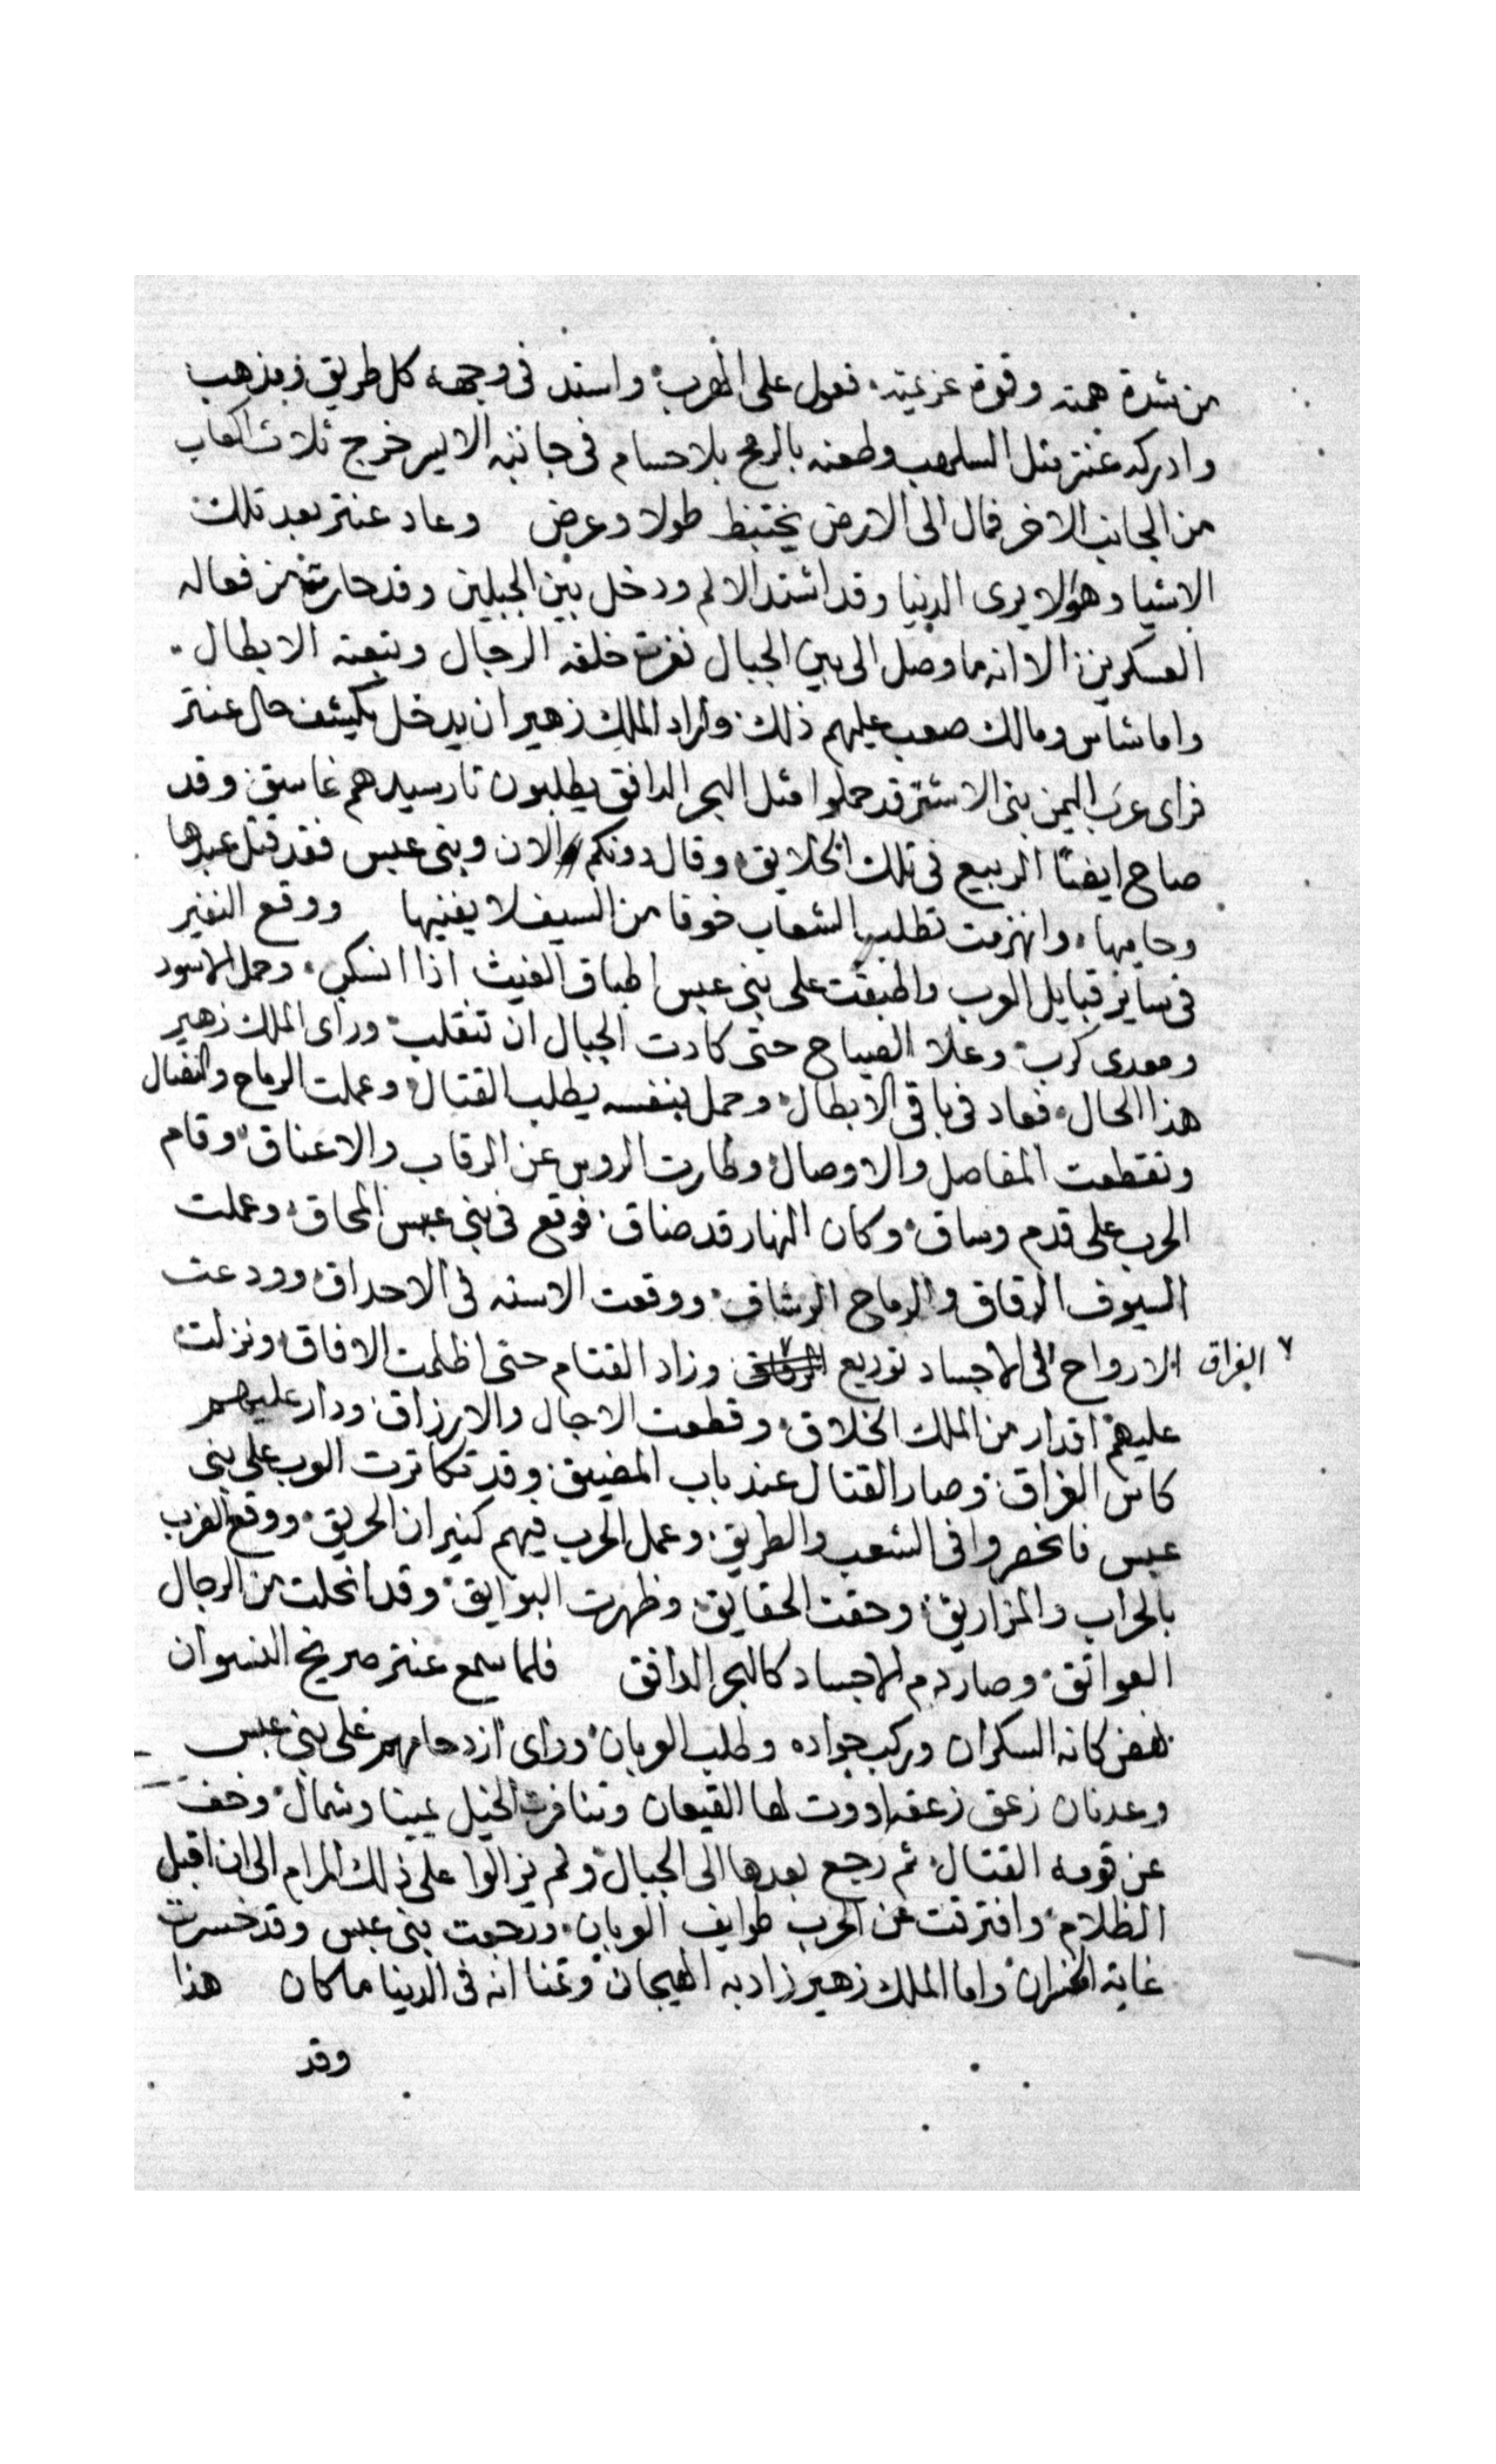 من شدة همته وقوة عزيمته. فعول على الهرب واستد فى وجهه كل طريق ومذهب
وادركه عنتر مثل السلهب وطعنه بالرمح بلا حسام فى جانبه الايسر خرج ثلاث اكعاب
من الجانب الاخر فمال الى الارض يختبظ طولا وعرض وعاد عنتر بعد تلك
الاشيا وهو لا يرى الدنيا وقد اشتد الالم ودخل بين الجبلين وقد حارت من فعاله
العسكرين الا انه ما وصل الى بين الجبال نفرت خلفه الرجال وتبعته الابطال.
واما شاس ومالك صعب عليهم ذلك واراد الملك زهير ان يدخل يكشف حال عنتر
فراى عرب اليمن بنى الاشتر قد حملوا مثل البحر الدافق يطلبون تار سيدهم غاسق وقد
صاح ايضا الربيع فى تلك الخلايق وقال دونكم الان وبنى عبس فقد قتل عبدها
وحاميها. وانهزمت تطلب الشعاب خوفا من السيف لا يفنيها ووقع النفير
فى ساير قبايل العرب واطبقت على بنى عبس اطباق الغيث اذا انسكب. وحمل الاسود
ومعدى كرب وعلا الصياح حتى كادت الجبال ان تنقلب وراى الملك زهير
هذا الحال. فعاد فى باقى الابطال وحمل بنفسه يطلب القتال وعملت الرماح والنصال
وتقطعت المفاصل والاوصال وطارت الروس عن الرقاب والاعناق وقام
الحرب على قدم وساق وكان النهار قد ضاق. فوقع فى بنى عبس المحاق وعملت
السيوف الرقاق والرماح الرشاق ووقعت الاسنه فى الاحداق وودعت
الارواح الى الاجساد توديع وزاد القتام حتى اظلمت الافاق ونزلت
٧ الفراق
عليهم اقدار من الملك الخلاق وقطعت الاجال والارزاق ودار عليهم
كاس الفراق وصار القتال عند باب المضيق وقد تكاثرت العرب على بنى
عبس فانحصروا فى الشعب والطريق وعمل الحرب فيهم كنيران الحريق ووقع الضرب
بالحراب والمزاريق وحقت الحقايق وظهرت البوايق وقد انحلت من الرجال
العواتق وصار دم الاجساد كالبحر الدافق فلما سمع عنتر صريخ النسوان
نهض كانه السكران وركب جواده وطلب العربان وراى ازدحامهم على بنى عبس
وعدنان زعق زعقه ادوت لها القيعان وتنافرت الخيل يمينا وشمال وخفف
عن قومه القتال ثم رجع بعدها الى الجبال ولم يزالوا على ذلك المرام الى ان اقبل
الظلام وافترقت عن الحرب طوايف العربان ورجعت بنى عبس وقد خسرت
غاية الخسران واما الملك زهير زاد به الهيجان وتمنا انه فى الدينا ما كان هذا
وقد